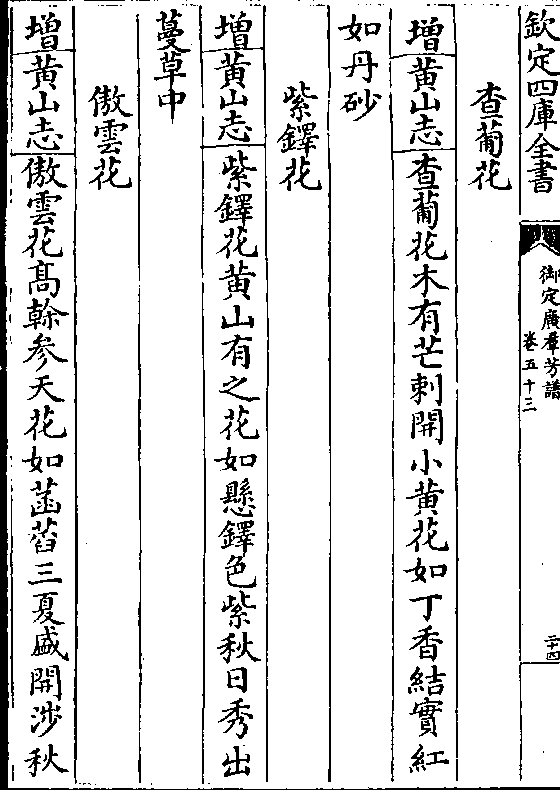 欽定四庫全書
御定廣羣芳譜
卷五十三
二十四
查葡花
增黄山志查葡花木有芒刺開小黄花如丁香結實紅
如丹砂
紫鐸花
增黄山志紫鐸花黄山有之花如懸鐸色紫秋日秀出
蔓草中
傲雲花
增黄山志傲雲花髙幹参天花如菡萏三夏盛開涉秋